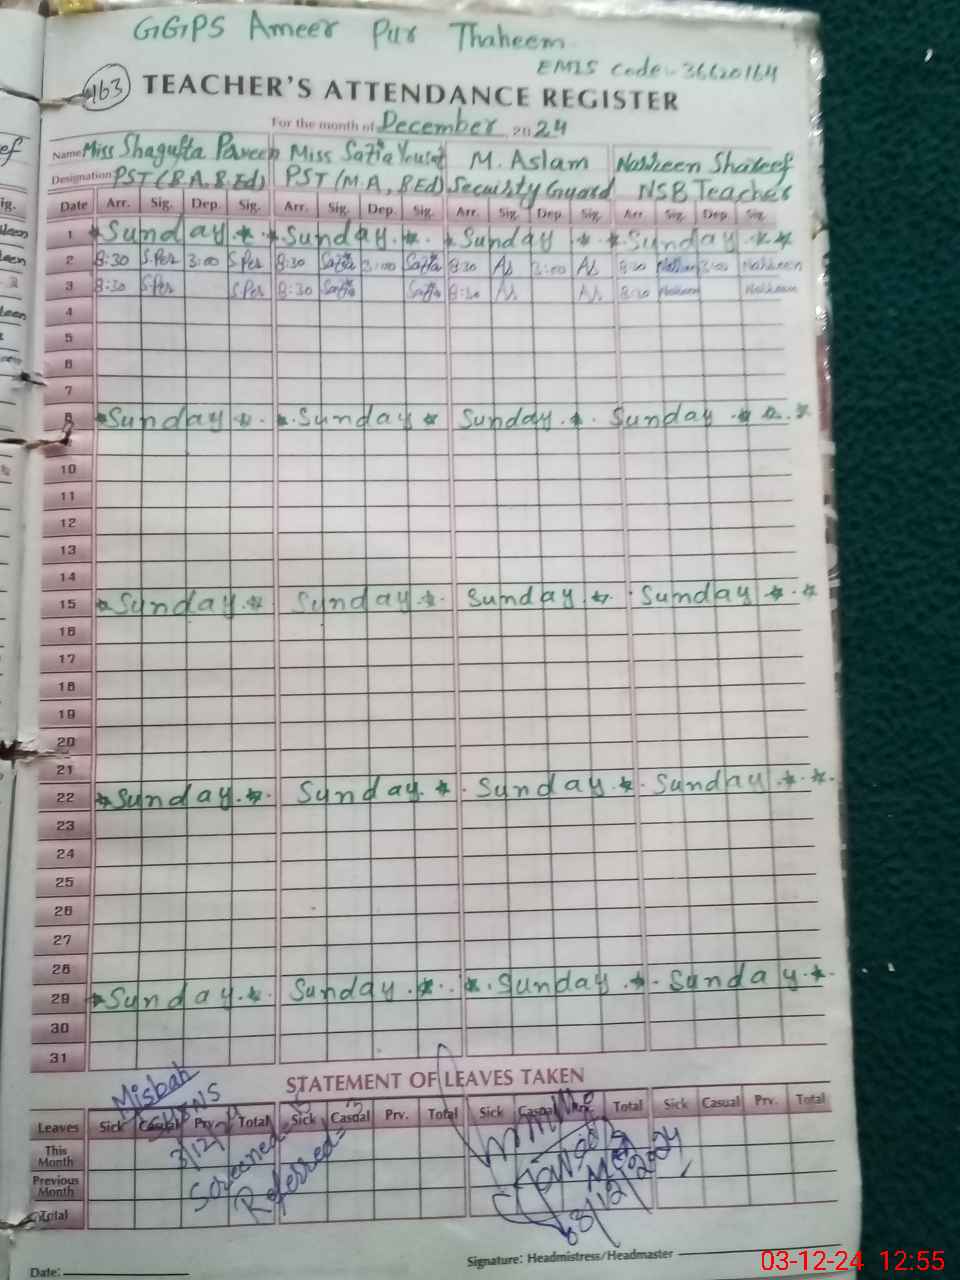 GGPS Ameer Pur Thaheem
EMIS code:- 36620164
163 TEACHER'S ATTENDANCE REGISTER
For the month of December, 2024
Name Miss Shagufta Parveen Miss Sazia Yousaf M. Aslam Nasheen Shareef
Designation PST (B.A, B.Ed) PST (M.A, B.Ed) Security Guard NSB Teacher
Date Arr. Sig. Dep. Sig. Arr. Sig. Dep. Sig. Arr. Sig. Dep. Sig. Arr. Sig. Dep. Sig.
1 Sunday Sunday Sunday Sunday
2 8:30 S.Per 3:00 S.Per 8:30 Sazia 3:00 Sazia 8:30 As 3:00 As 8:30 Nasheen 3:00 Nasheen
3 8:30 S.Per S.Per 8:30 Sazia Sazia 8:30 As As 8:30 Nasheen Nasheen
4
5
6
7
8 Sunday Sunday Sunday Sunday
10
11
12
13
14
15 Sunday Sunday Sunday Sunday
16
17
18
19
20
21
22 Sunday Sunday Sunday Sunday
23
24
25
26
27
28
29 Sunday Sunday Sunday Sunday
30
31
STATEMENT OF LEAVES TAKEN
Misbah
SH&NS
3/12/24
Screened=
Referred=
Leaves Sick Casual Prv. Total Sick Casual Prv. Total Sick Casual Prv. Total Sick Casual Prv. Total
This Month
Previous Month
Total
03/12/2024
Date:
Signature: Headmistress/Headmaster
03-12-24 12:55